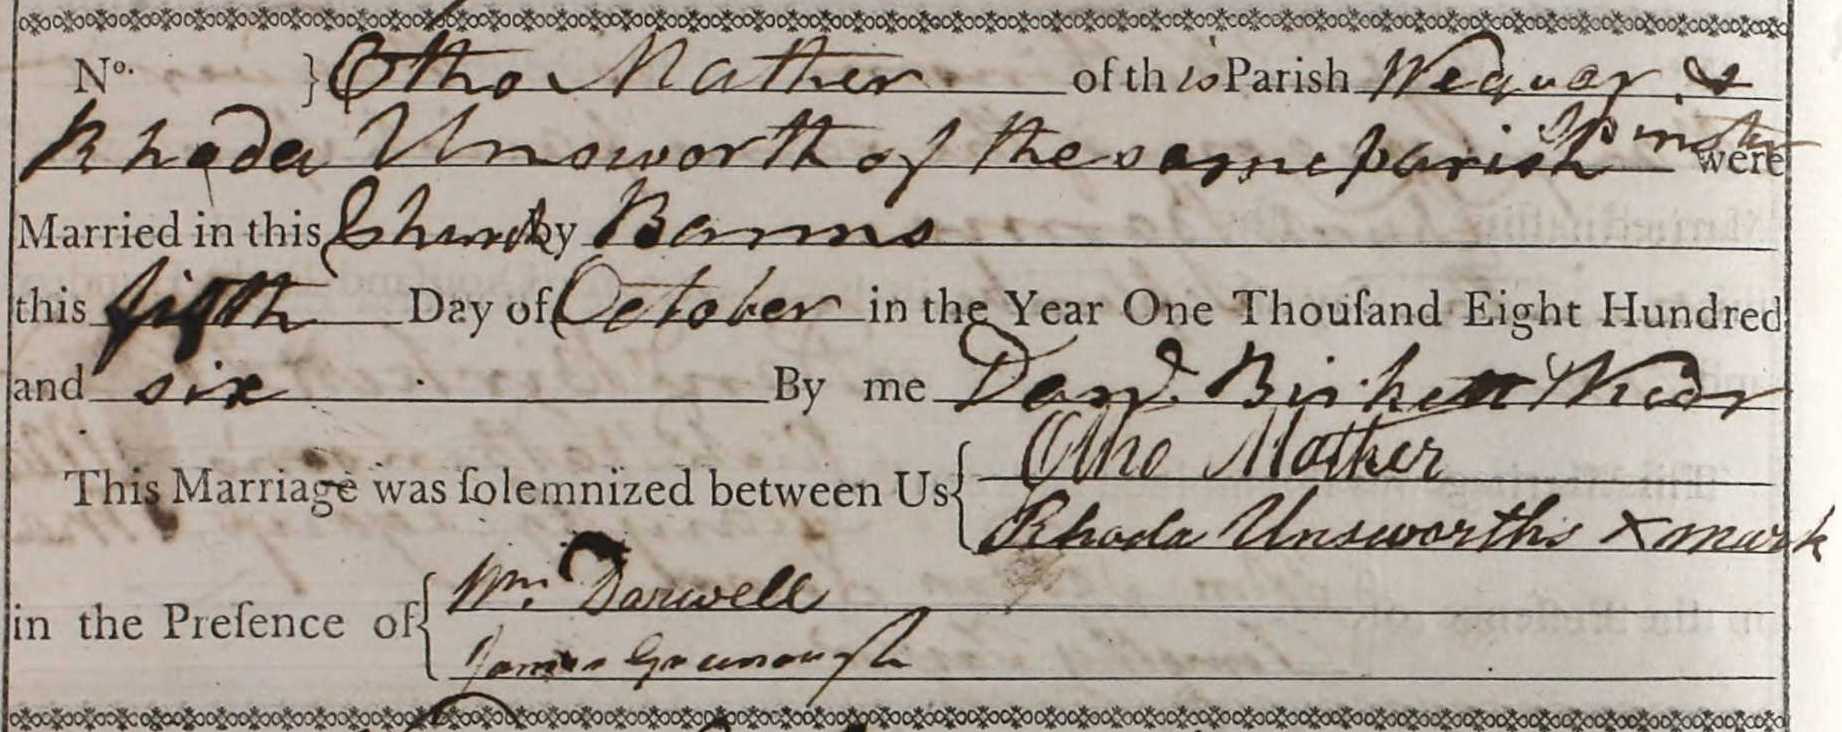 No. } Otho Mather of this Parish Weaver &
Rhoda Unsworth of the same parish Spinster were
Married in this Church by Banns
this fifth Day of October in the Year One Thouſand Eight Hundred
and six By me Dan.l Birkett Vicar
This Marriage was ſolemnized between Us { Otho Mather
Rhoda Unsworths X mark
in the Preſence of { Wm. Darwell
James Greenough